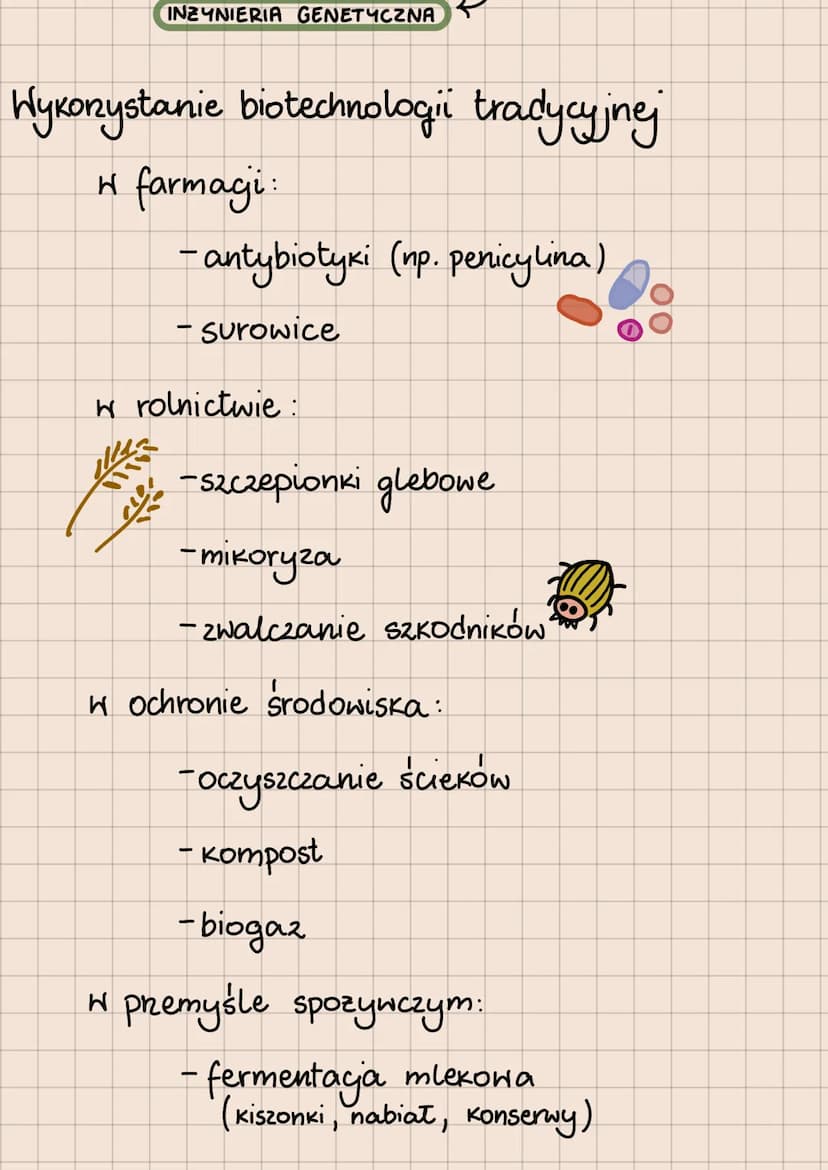 INŻYNIERIA GENETYCZNA
Wykorzystanie biotechnologii tradycyjnej
w farmagi:
- antybiotyki (np. penicylina)
- surowice
w rolnictwie:
- szczepionki glebowe
- mikoryza
- zwalczanie szkodników
w ochronie środowiska:
- oczyszczanie ścieków
- kompost
- biogaz
w przemyśle spożywczym:
- fermentacja mlekowa
(kiszonki, nabiał, konserwy)